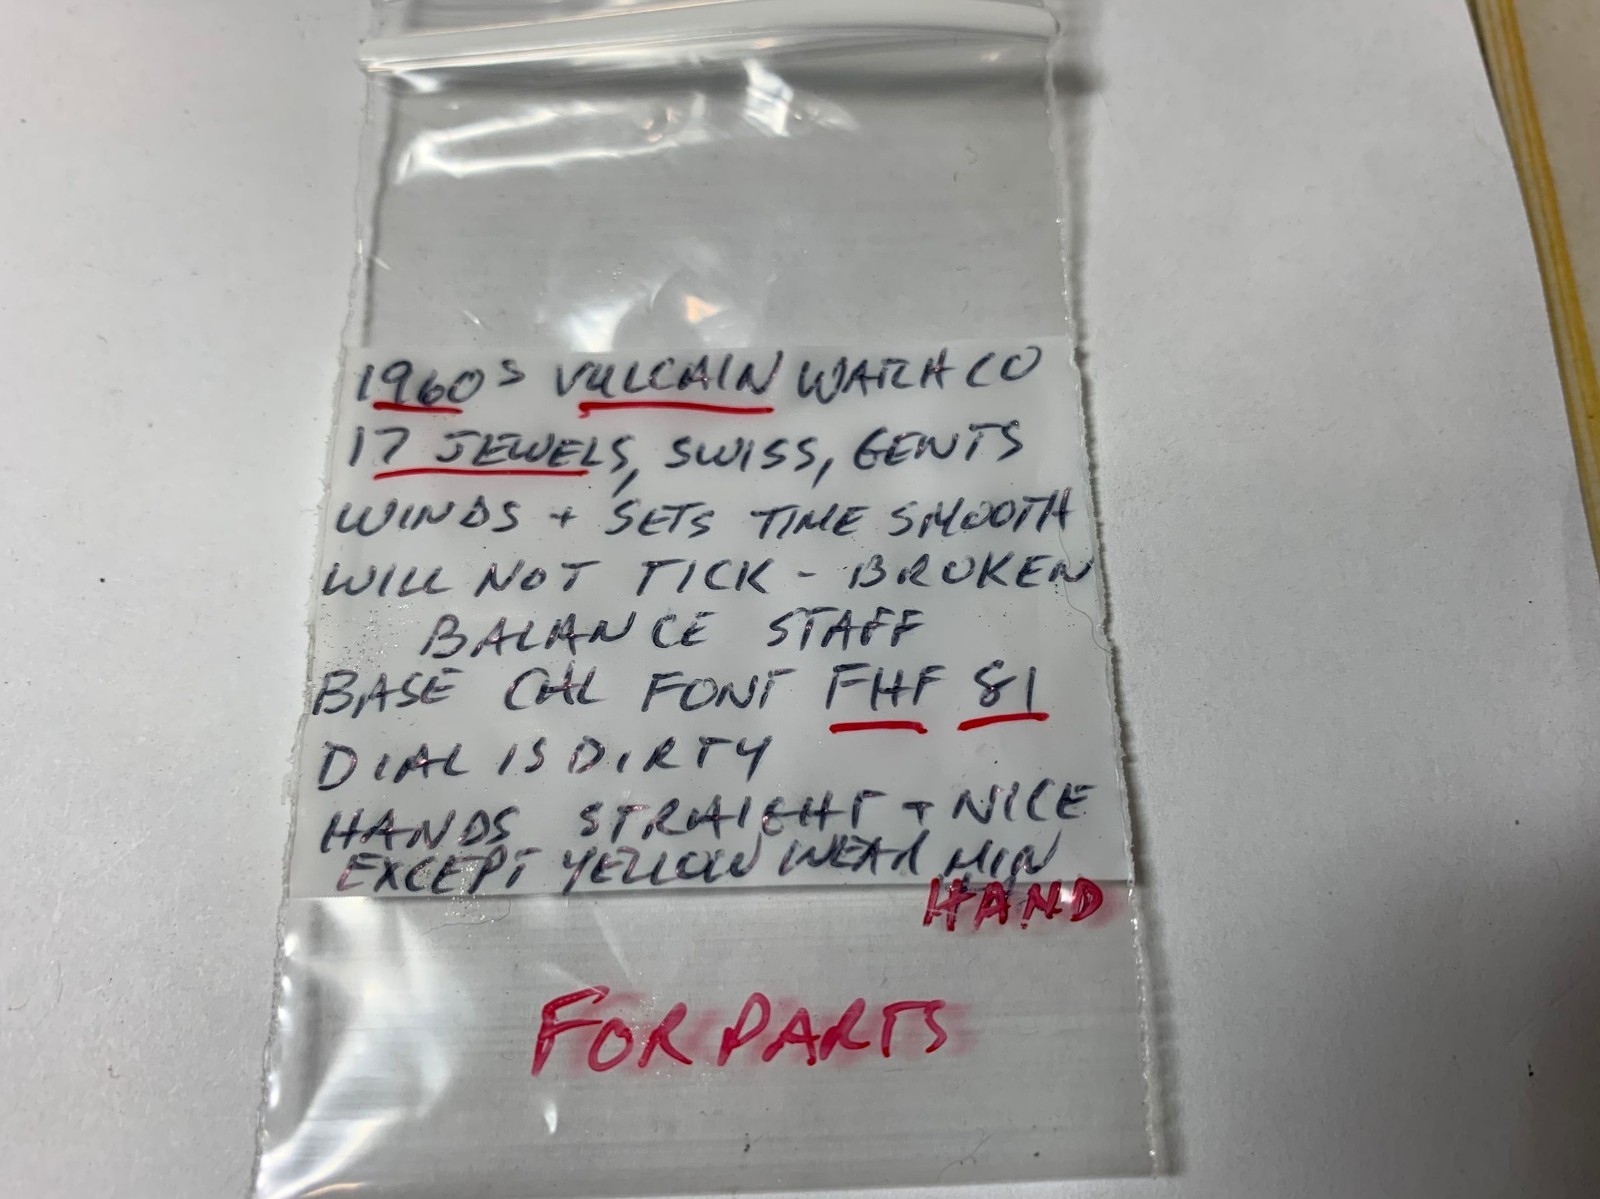 1960s VULCAIN WATCH CO
17 JEWELS, SWISS, GENTS
WINDS + SETS TIME SMOOTH
WILL NOT TICK - BROKEN
BALANCE STAFF
BASE CAL FONT FHF 81
DIAL IS DIRTY
HANDS STRAIGHT + NICE
EXCEPT YELLOW WEAR MIN
HAND
FOR PARTS